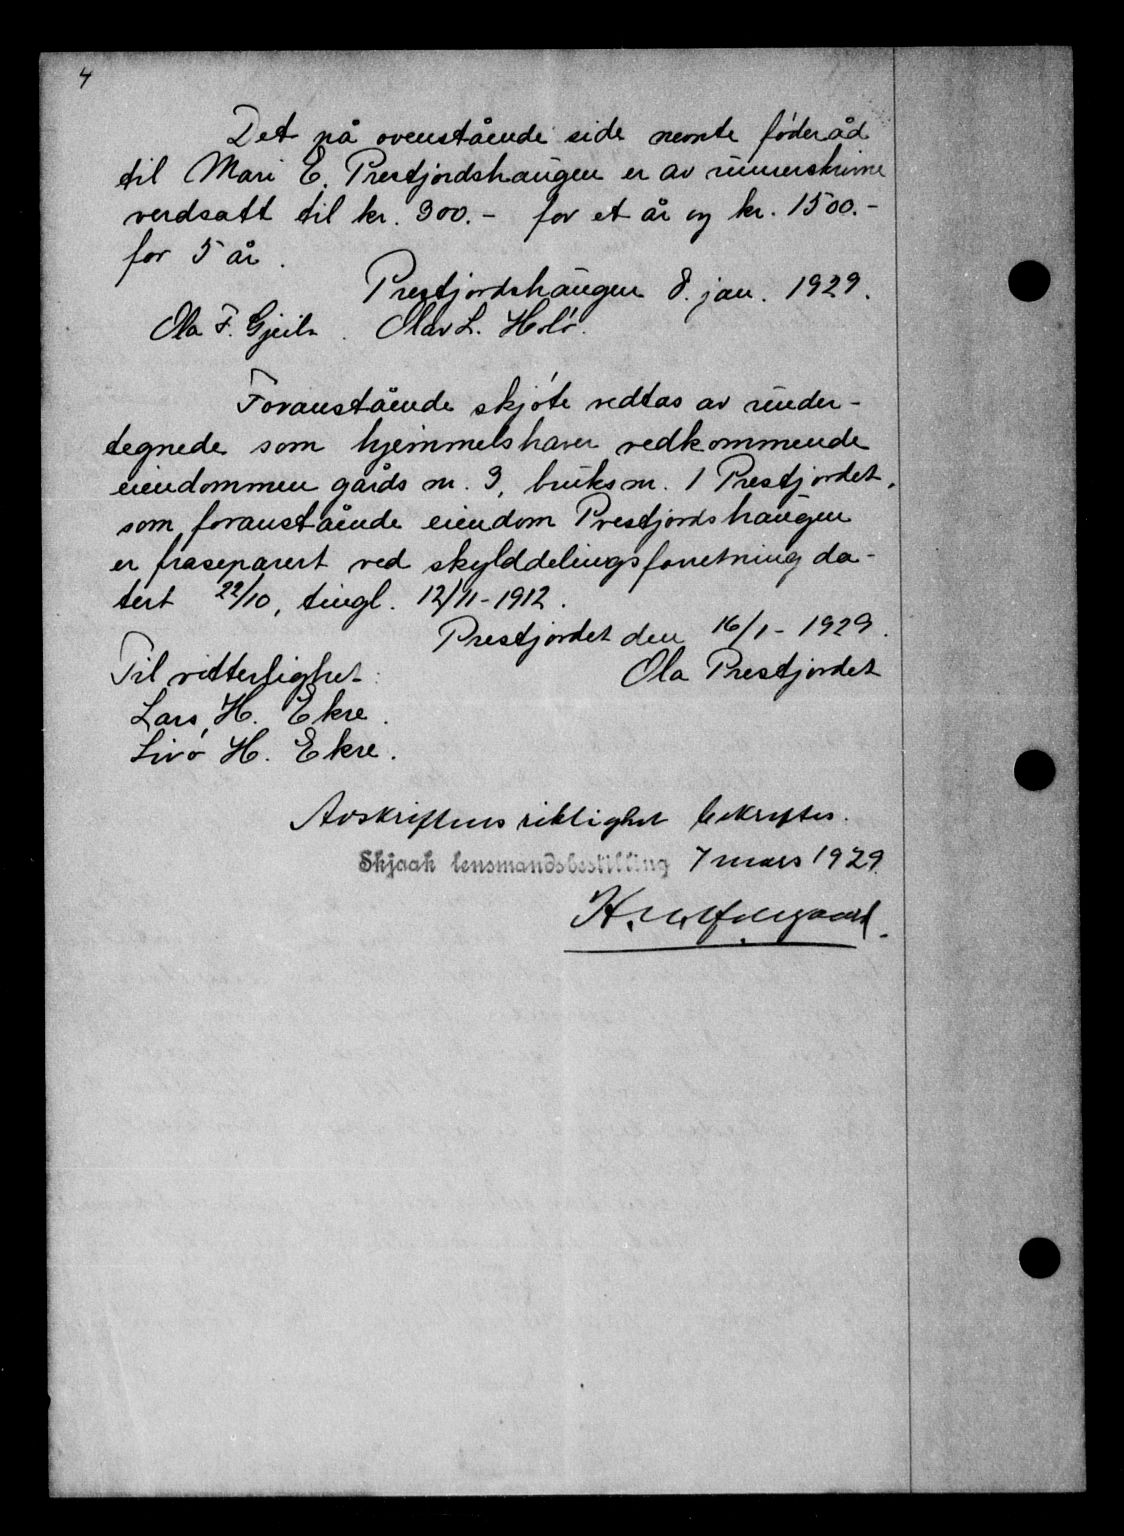 4
Det på ovenstående side nemte føderåd
til Mari E. Prestjordshaugen er av unnerskrivne
verdsatt til kr. 300.- for et år og kr. 1500.-
for 5 år.
Prestjordshaugen 8. jan. 1929.
Ola F. Gjeilo. Olav L. Holø.
Foranstående skjøte vedtas av under-
tegnede som hjemmelshaver vedkommende
eiendommen gårds nr. 3, bruksnr. 1 Prestjordet,
som foranstående eiendom Prestjordshaugen
er fraseparert ved skylddelingsforretning da-
tert 22/10, tingl. 12/11-1912.
Prestjordet den 16/1-1929.
Til vitterlighet: Ola Prestjordet
Lars H. Ekre.
Sivø H. Ekre.
Avskriftens riktighet bekreftes.
Skjaak lensmandsbestilling 7 mars 1929.